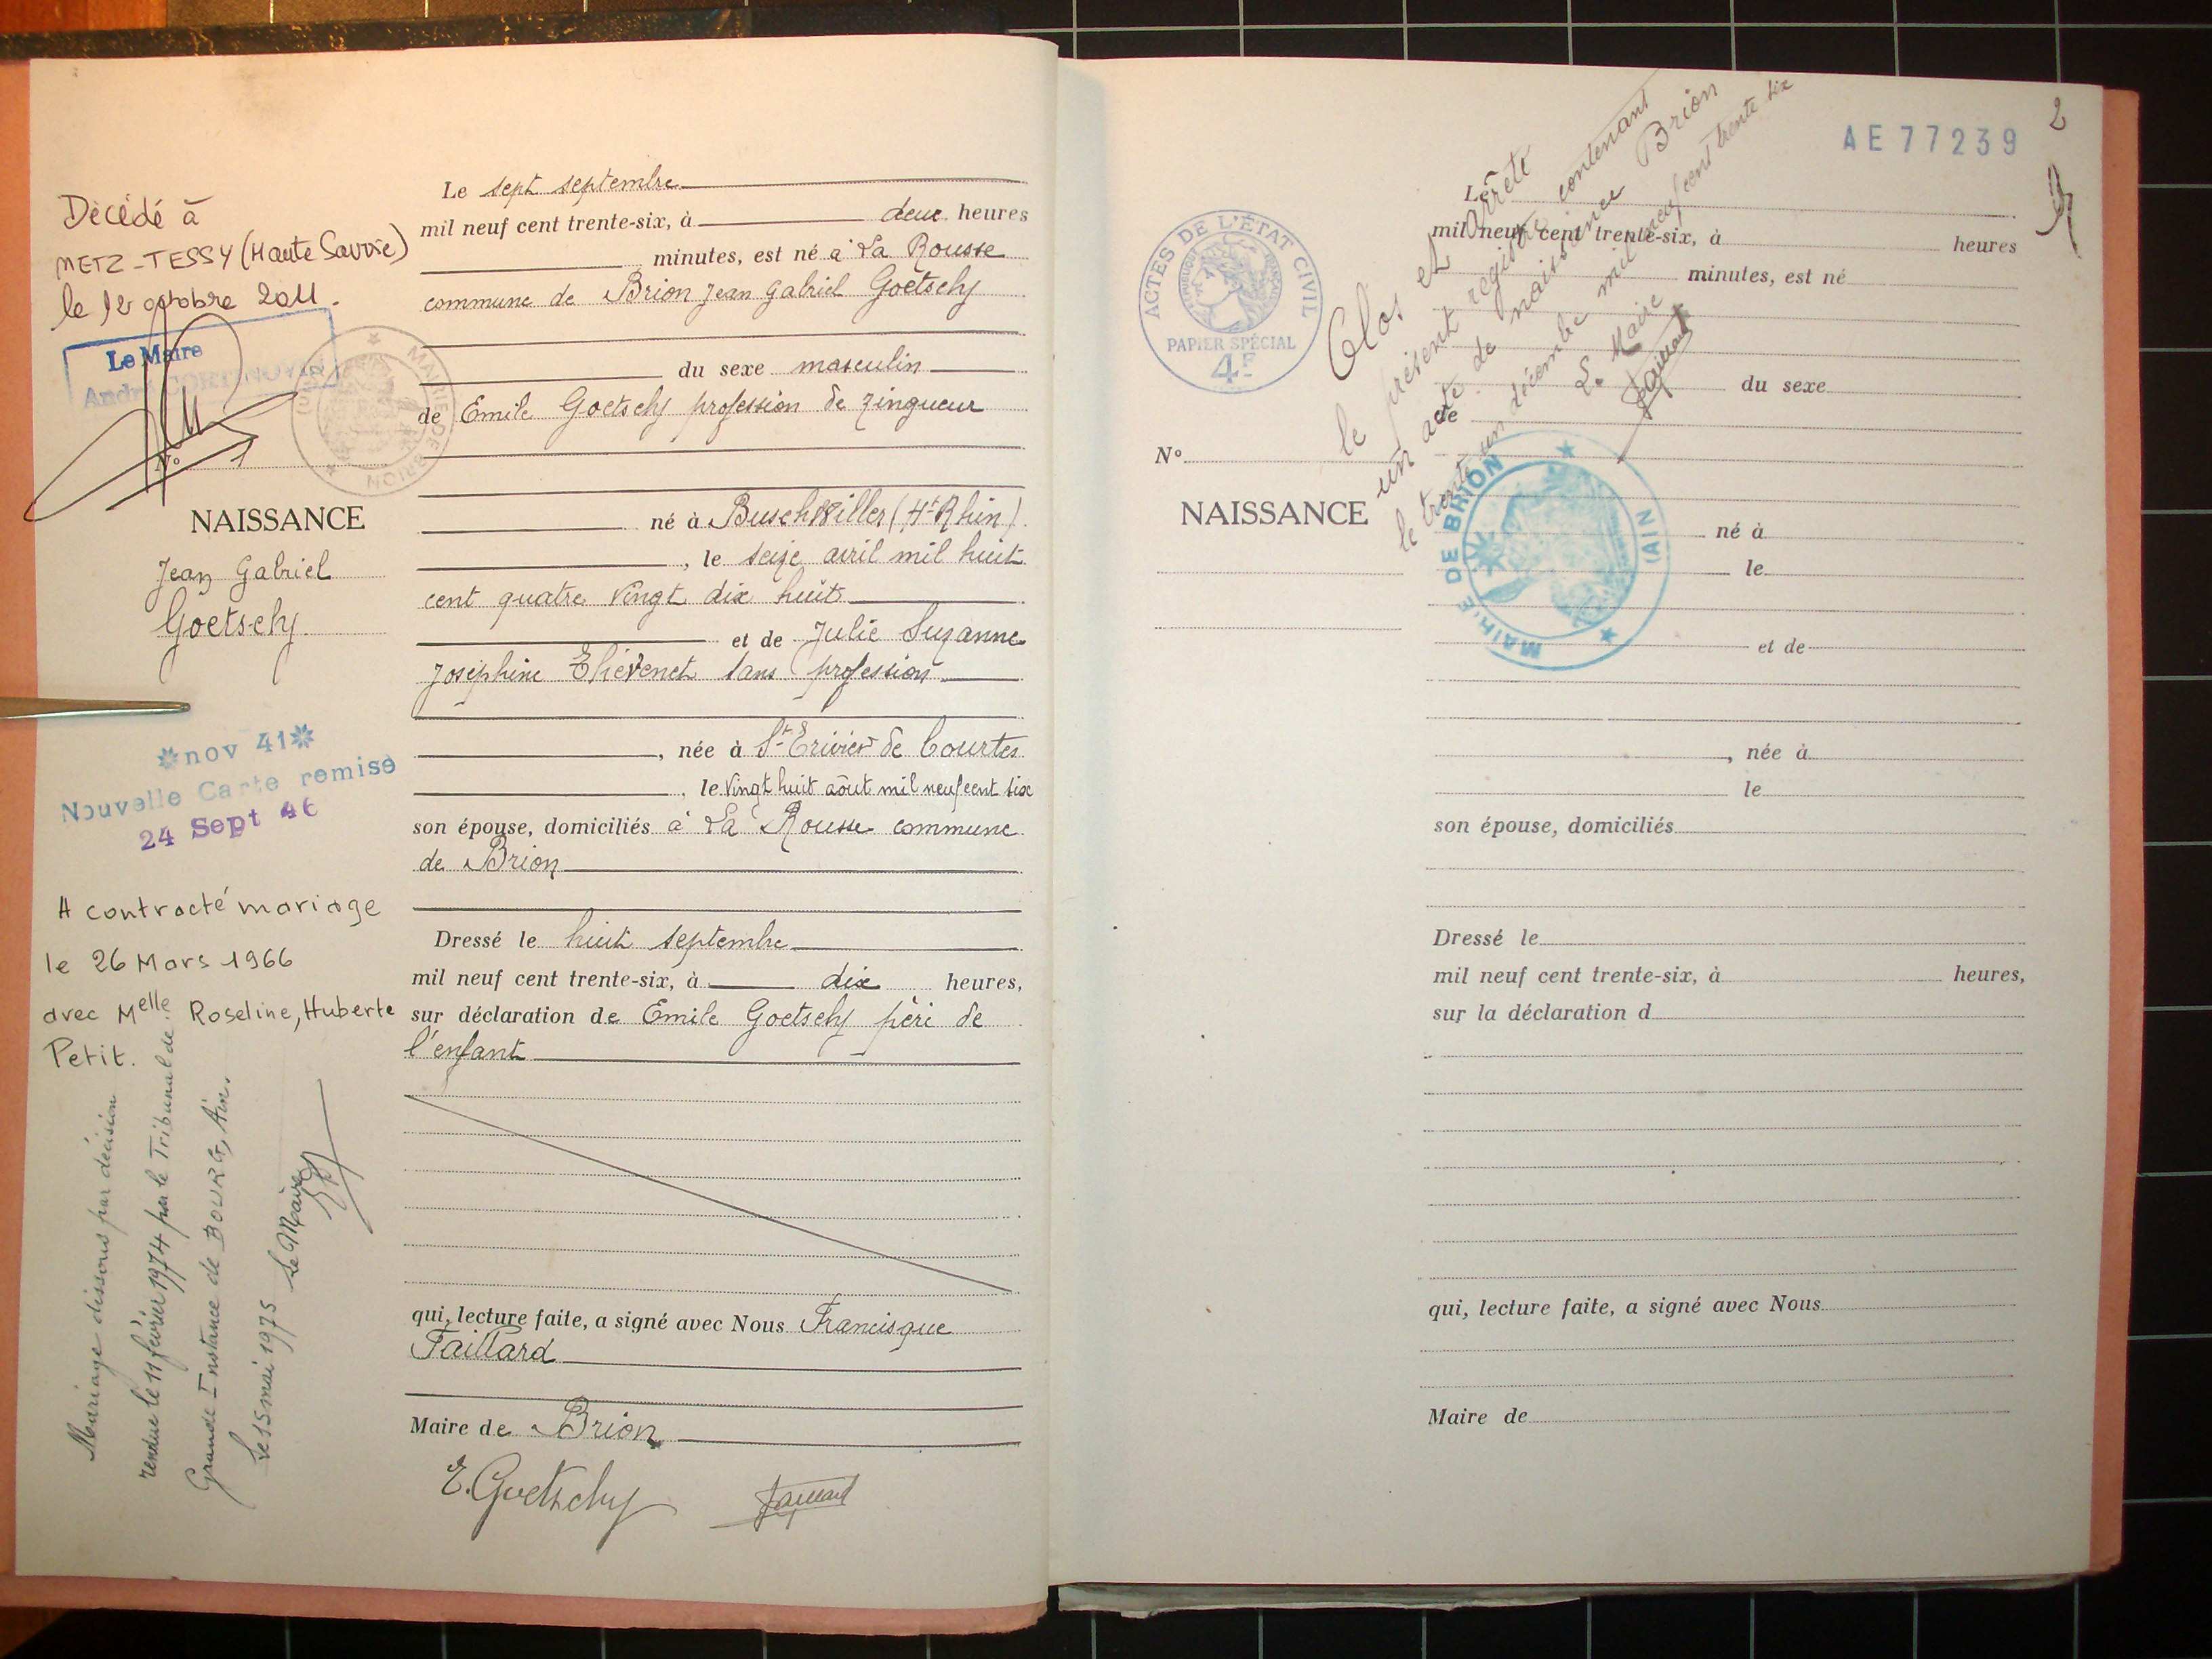 Décédé à
METZ-TESSY (Haute Savoie)
le 12 octobre 2011.
Le Maire
MAIRIE DE BRION
N°
NAISSANCE
Jean Gabriel
Goetschy
nov 41
Nouvelle Carte remise
24 Sept 46
A contracté mariage
le 26 Mars 1966
avec Melle Roseline, Huberte
Petit.
Mariage dissous par décision
rendue le 11 février 1974 par le Tribunal de
Grande Instance de BOURG, Ain.
Le 15 mai 1975 Le Maire
Le sept septembre
mil neuf cent trente-six, à deux heures
minutes, est né à La Rousse
commune de Brion Jean Gabriel Goetschy
du sexe masculin
de Emile Goetschy profession de zingueur
né à Buschwiller (Ht Rhin)
, le seize avril mil huit
cent quatre vingt dix huit
et de Julie Suzanne
Joséphine Thévenet sans profession
, née à St Trivier de Courtes
, le Vingt huit août mil neuf cent six
son épouse, domiciliés à La Rousse commune
de Brion
Dressé le huit septembre
mil neuf cent trente-six, à dix heures,
sur déclaration de Emile Goetschy père de
l'enfant
qui, lecture faite, a signé avec Nous Francisque
Faillard
Maire de Brion
E. Goetschy
Faillard
2
AE 77239
ACTES DE L'ÉTAT CIVIL
PAPIER SPÉCIAL
4F
Clos et Arrêté
le présent registre contenant
un acte de naissance Brion
le trente un décembre mil neuf cent trente six
Le Maire
Faillard
MAIRIE DE BRION
(AIN)
Le
mil neuf cent trente-six, à heures
minutes, est né
du sexe
de
N°
NAISSANCE
né à
le
et de
, née à
le
son épouse, domiciliés
Dressé le
mil neuf cent trente-six, à heures,
sur la déclaration d
qui, lecture faite, a signé avec Nous
Maire de